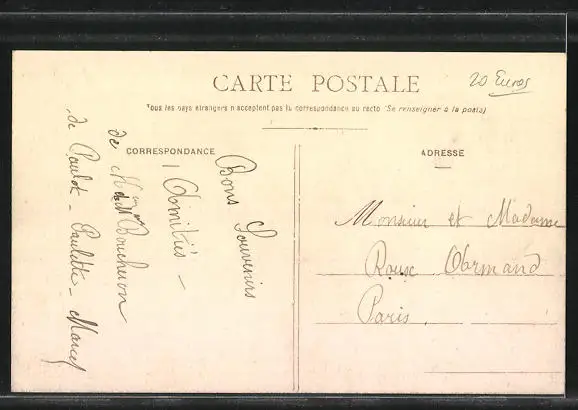 CARTE POSTALE
20 Euros
Tous les pays étrangers n'acceptent pas la correspondance au recto (Se renseigner à la poste)
CORRESPONDANCE
Bons Souvenirs
Amitiés -
de M et Mme Boucheron
de Paulot - Paulette - Marcel
ADRESSE
Monsieur et Madame
Roux Armand
Paris